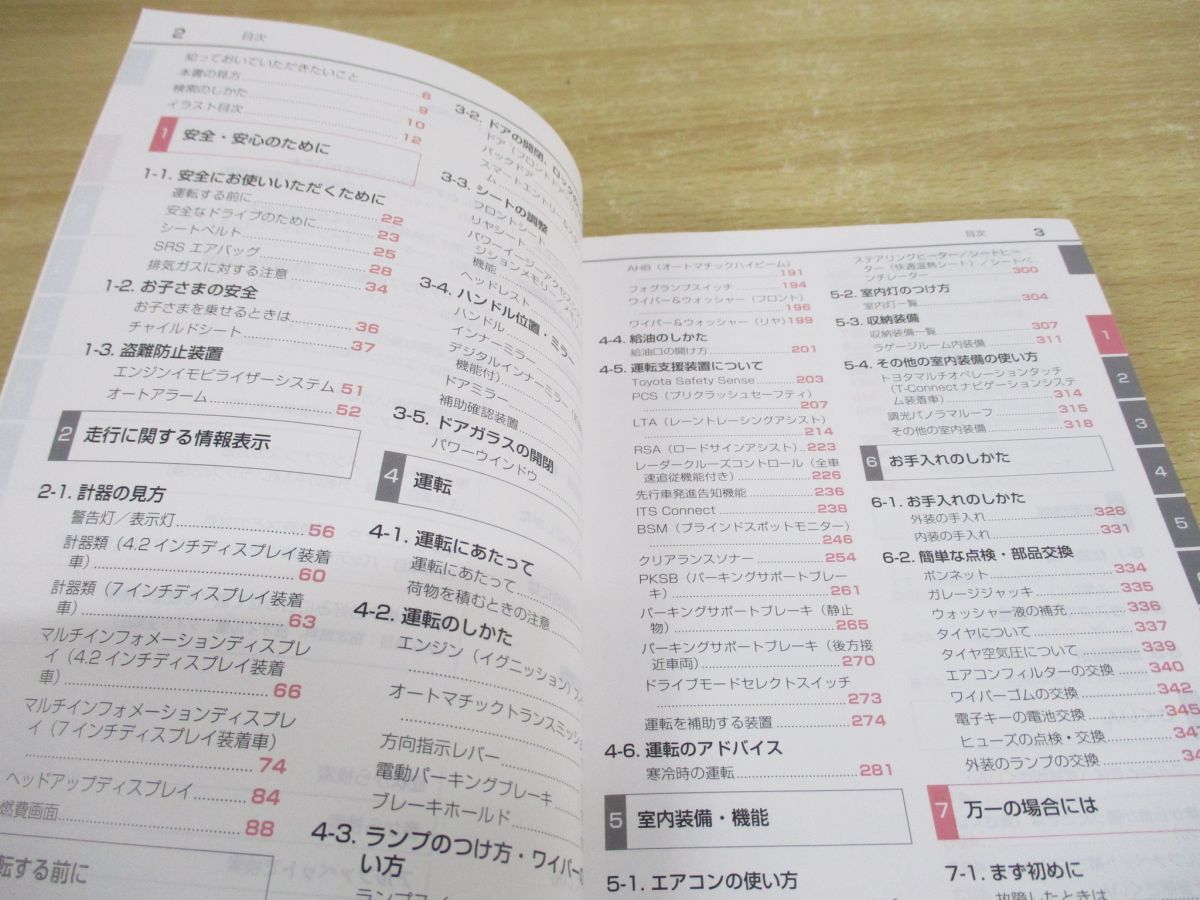 2
目次
知っておいていただきたいこと
6
本書の見方
9
検索のしかた
10
イラスト目次
12
1 安全・安心のために
1-1. 安全にお使いいただくために
運転する前に
22
安全なドライブのために
23
シートベルト
25
SRS エアバッグ
28
排気ガスに対する注意
34
1-2. お子さまの安全
お子さまを乗せるときは
36
チャイルドシート
37
1-3. 盗難防止装置
エンジンイモビライザーシステム 51
オートアラーム
52
2 走行に関する情報表示
2-1. 計器の見方
警告灯／表示灯
56
計器類（4.2 インチディスプレイ装着
車）
60
計器類（7 インチディスプレイ装着
車）
63
マルチインフォメーションディスプレ
イ（4.2 インチディスプレイ装着
車）
66
マルチインフォメーションディスプレ
イ（7 インチディスプレイ装着車）
74
ヘッドアップディスプレイ
84
燃費画面
88
転する前に
3-2. ドアの開閉、ロック
ドア（フロントドア
バックドア
スマートエントリー
3-3. シートの調整
フロントシート
リヤシート
パワーイージーアクセス
ジションメモリー
機能
ヘッドレスト
3-4. ハンドル位置・ミラー
ハンドル
インナーミラー
デジタルインナーミラー
機能付）
ドアミラー
補助確認装置
3-5. ドアガラスの開閉
パワーウインドウ
4 運転
4-1. 運転にあたって
運転にあたって
荷物を積むときの注意
4-2. 運転のしかた
エンジン（イグニッション）
オートマチックトランスミッシ
方向指示レバー
電動パーキングブレーキ
ブレーキホールド
4-3. ランプのつけ方・ワイパー
い方
ランプスイ
目次
3
AHB（オートマチックハイビーム）
191
フォグランプスイッチ
194
ワイパー＆ウォッシャー（フロント）
196
ワイパー＆ウォッシャー（リヤ）199
4-4. 給油のしかた
給油口の開け方
201
4-5. 運転支援装置について
Toyota Safety Sense
203
PCS（プリクラッシュセーフティ）
207
LTA（レーントレーシングアシスト）
214
RSA（ロードサインアシスト）
223
レーダークルーズコントロール（全車
速追従機能付き）
226
先行車発進告知機能
236
ITS Connect
238
BSM（ブラインドスポットモニター）
246
クリアランスソナー
254
PKSB（パーキングサポートブレー
キ）
261
パーキングサポートブレーキ（静止
物）
265
パーキングサポートブレーキ（後方接
近車両）
270
ドライブモードセレクトスイッチ
273
運転を補助する装置
274
4-6. 運転のアドバイス
寒冷時の運転
281
5 室内装備・機能
5-1. エアコンの使い方
ステアリングヒーター／シートヒー
ター（快適温熱シート）／シートベ
ンチレーター
300
5-2. 室内灯のつけ方
室内灯一覧
304
5-3. 収納装備
収納装備一覧
307
ラゲージルーム内装備
311
5-4. その他の室内装備の使い方
トヨタマルチオペレーションタッチ
（T-Connect ナビゲーションシステ
ム装着車）
314
調光パノラマルーフ
315
その他の室内装備
318
6 お手入れのしかた
6-1. お手入れのしかた
外装の手入れ
328
内装の手入れ
331
6-2. 簡単な点検・部品交換
ボンネット
334
ガレージジャッキ
335
ウォッシャー液の補充
336
タイヤについて
337
タイヤ空気圧について
339
エアコンフィルターの交換
340
ワイパーゴムの交換
342
電子キーの電池交換
345
ヒューズの点検・交換
34
外装のランプの交換
34
7 万一の場合には
7-1. まず初めに
故障したときは
1
2
3
4
5